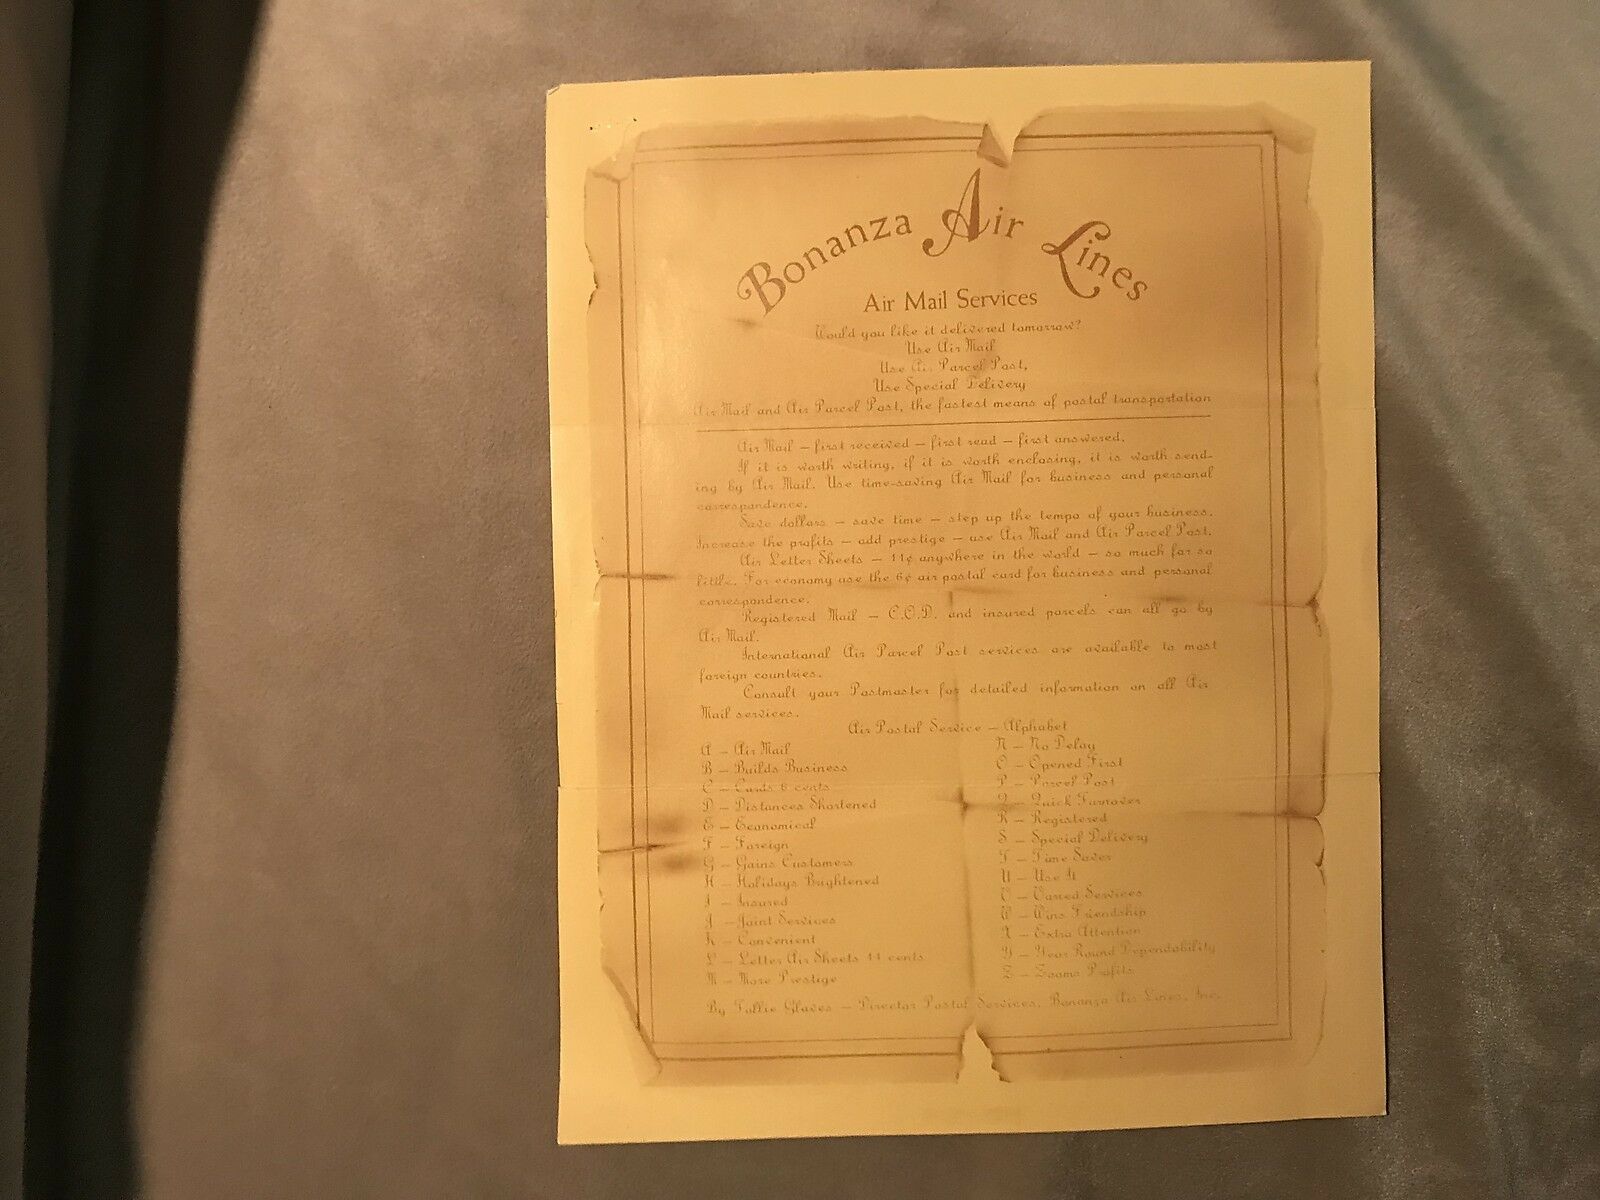 Bonanza Air Lines
Air Mail Services
Would you like it delivered tomorrow?
Use Air Mail
Use Air Parcel Post,
Use Special Delivery
Air Mail and Air Parcel Post, the fastest means of postal transportation
Air Mail — first received — first read — first answered.
If it is worth writing, if it is worth enclosing, it is worth send-
ing by Air Mail. Use time-saving Air Mail for business and personal
correspondence.
Save dollars — save time — step up the tempo of your business.
Increase the profits — add prestige — use Air Mail and Air Parcel Post.
Air Letter Sheets — 11¢ anywhere in the world — so much for so
little. For economy use the 6¢ air postal card for business and personal
correspondence.
Registered Mail — C.O.D. and insured parcels can all go by
Air Mail.
International Air Parcel Post services are available to most
foreign countries.
Consult your Postmaster for detailed information on all Air
Mail services.
Air Postal Service — Alphabet
A — Air Mail
B — Builds Business
C — Cards 6 cents
D — Distances Shortened
E — Economical
F — Foreign
G — Gains Customers
H — Holidays Brightened
I — Insured
J — Joint Services
K — Convenient
L — Letter Air Sheets 11 cents
M — More Prestige
N — No Delay
O — Opened First
P — Parcel Post
Q — Quick Turnover
R — Registered
S — Special Delivery
T — Time Saver
U — Use It
V — Varied Services
W — Wins Friendship
X — Extra Attention
Y — Year Round Dependability
Z — Zooms Profits
By Tollie Glaves — Director Postal Services, Bonanza Air Lines, Inc.